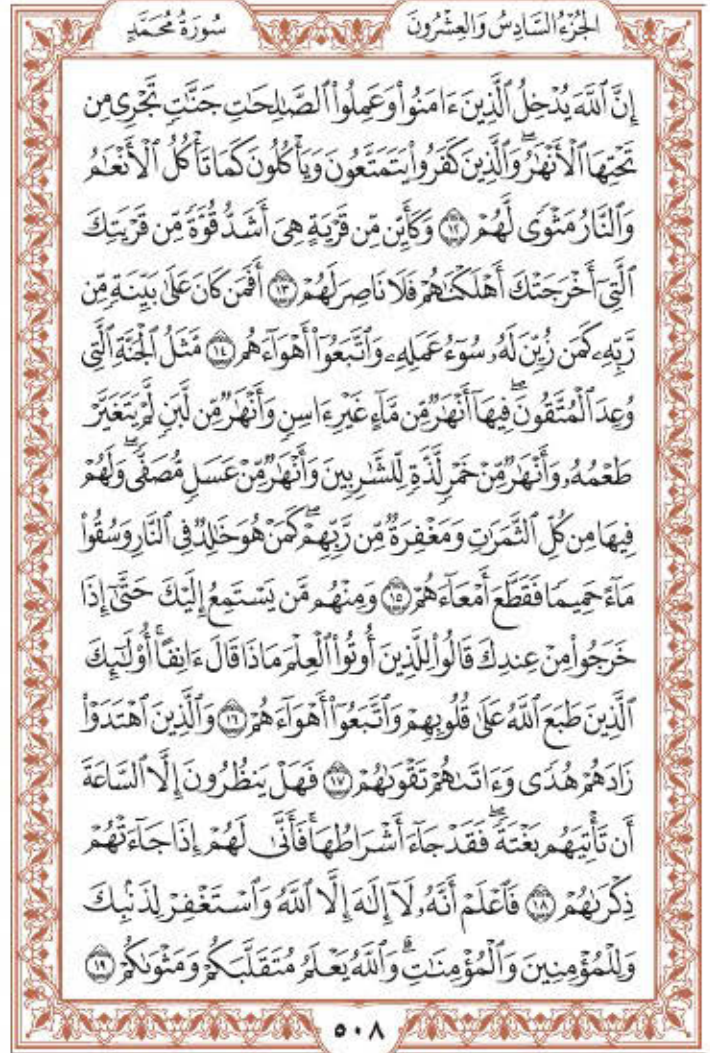 الجُزْءُ السَّادِسُ وَالعِشْرُونَ سُورَةُ مُحَمَّدٍ
إِنَّ ٱللَّهَ يُدْخِلُ ٱلَّذِينَ ءَامَنُوا۟ وَعَمِلُوا۟ ٱلصَّٰلِحَٰتِ جَنَّٰتٍ تَجْرِى مِن
تَحْتِهَا ٱلْأَنْهَٰرُ ۖ وَٱلَّذِينَ كَفَرُوا۟ يَتَمَتَّعُونَ وَيَأْكُلُونَ كَمَا تَأْكُلُ ٱلْأَنْعَٰمُ
وَٱلنَّارُ مَثْوًى لَّهُمْ ١٢ وَكَأَيِّن مِّن قَرْيَةٍ هِىَ أَشَدُّ قُوَّةً مِّن قَرْيَتِكَ
ٱلَّتِىٓ أَخْرَجَتْكَ أَهْلَكْنَٰهُمْ فَلَا نَاصِرَ لَهُمْ ١٣ أَفَمَن كَانَ عَلَىٰ بَيِّنَةٍ مِّن
رَّبِّهِۦ كَمَن زُيِّنَ لَهُۥ سُوٓءُ عَمَلِهِۦ وَٱتَّبَعُوٓا۟ أَهْوَآءَهُم ١٤ مَّثَلُ ٱلْجَنَّةِ ٱلَّتِى
وُعِدَ ٱلْمُتَّقُونَ ۖ فِيهَآ أَنْهَٰرٌ مِّن مَّآءٍ غَيْرِ ءَاسِنٍ وَأَنْهَٰرٌ مِّن لَّبَنٍ لَّمْ يَتَغَيَّرْ
طَعْمُهُۥ وَأَنْهَٰرٌ مِّنْ خَمْرٍ لَّذَّةٍ لِّلشَّٰرِبِينَ وَأَنْهَٰرٌ مِّنْ عَسَلٍ مُّصَفًّى ۖ وَلَهُمْ
فِيهَا مِن كُلِّ ٱلثَّمَرَٰتِ وَمَغْفِرَةٌ مِّن رَّبِّهِمْ ۖ كَمَنْ هُوَ خَٰلِدٌ فِى ٱلنَّارِ وَسُقُوا۟
مَآءً حَمِيمًا فَقَطَّعَ أَمْعَآءَهُمْ ١٥ وَمِنْهُم مَّن يَسْتَمِعُ إِلَيْكَ حَتَّىٰٓ إِذَا
خَرَجُوا۟ مِنْ عِندِكَ قَالُوا۟ لِلَّذِينَ أُوتُوا۟ ٱلْعِلْمَ مَاذَا قَالَ ءَانِفًا ۚ أُو۟لَٰٓئِكَ
ٱلَّذِينَ طَبَعَ ٱللَّهُ عَلَىٰ قُلُوبِهِمْ وَٱتَّبَعُوٓا۟ أَهْوَآءَهُمْ ١٦ وَٱلَّذِينَ ٱهْتَدَوْا۟
زَادَهُمْ هُدًى وَءَاتَىٰهُمْ تَقْوَىٰهُمْ ١٧ فَهَلْ يَنظُرُونَ إِلَّا ٱلسَّاعَةَ
أَن تَأْتِيَهُم بَغْتَةً ۖ فَقَدْ جَآءَ أَشْرَاطُهَا ۚ فَأَنَّىٰ لَهُمْ إِذَا جَآءَتْهُمْ
ذِكْرَىٰهُمْ ١٨ فَٱعْلَمْ أَنَّهُۥ لَآ إِلَٰهَ إِلَّا ٱللَّهُ وَٱسْتَغْفِرْ لِذَنۢبِكَ
وَلِلْمُؤْمِنِينَ وَٱلْمُؤْمِنَٰتِ ۗ وَٱللَّهُ يَعْلَمُ مُتَقَلَّبَكُمْ وَمَثْوَىٰكُمْ ١٩
٥٠٨